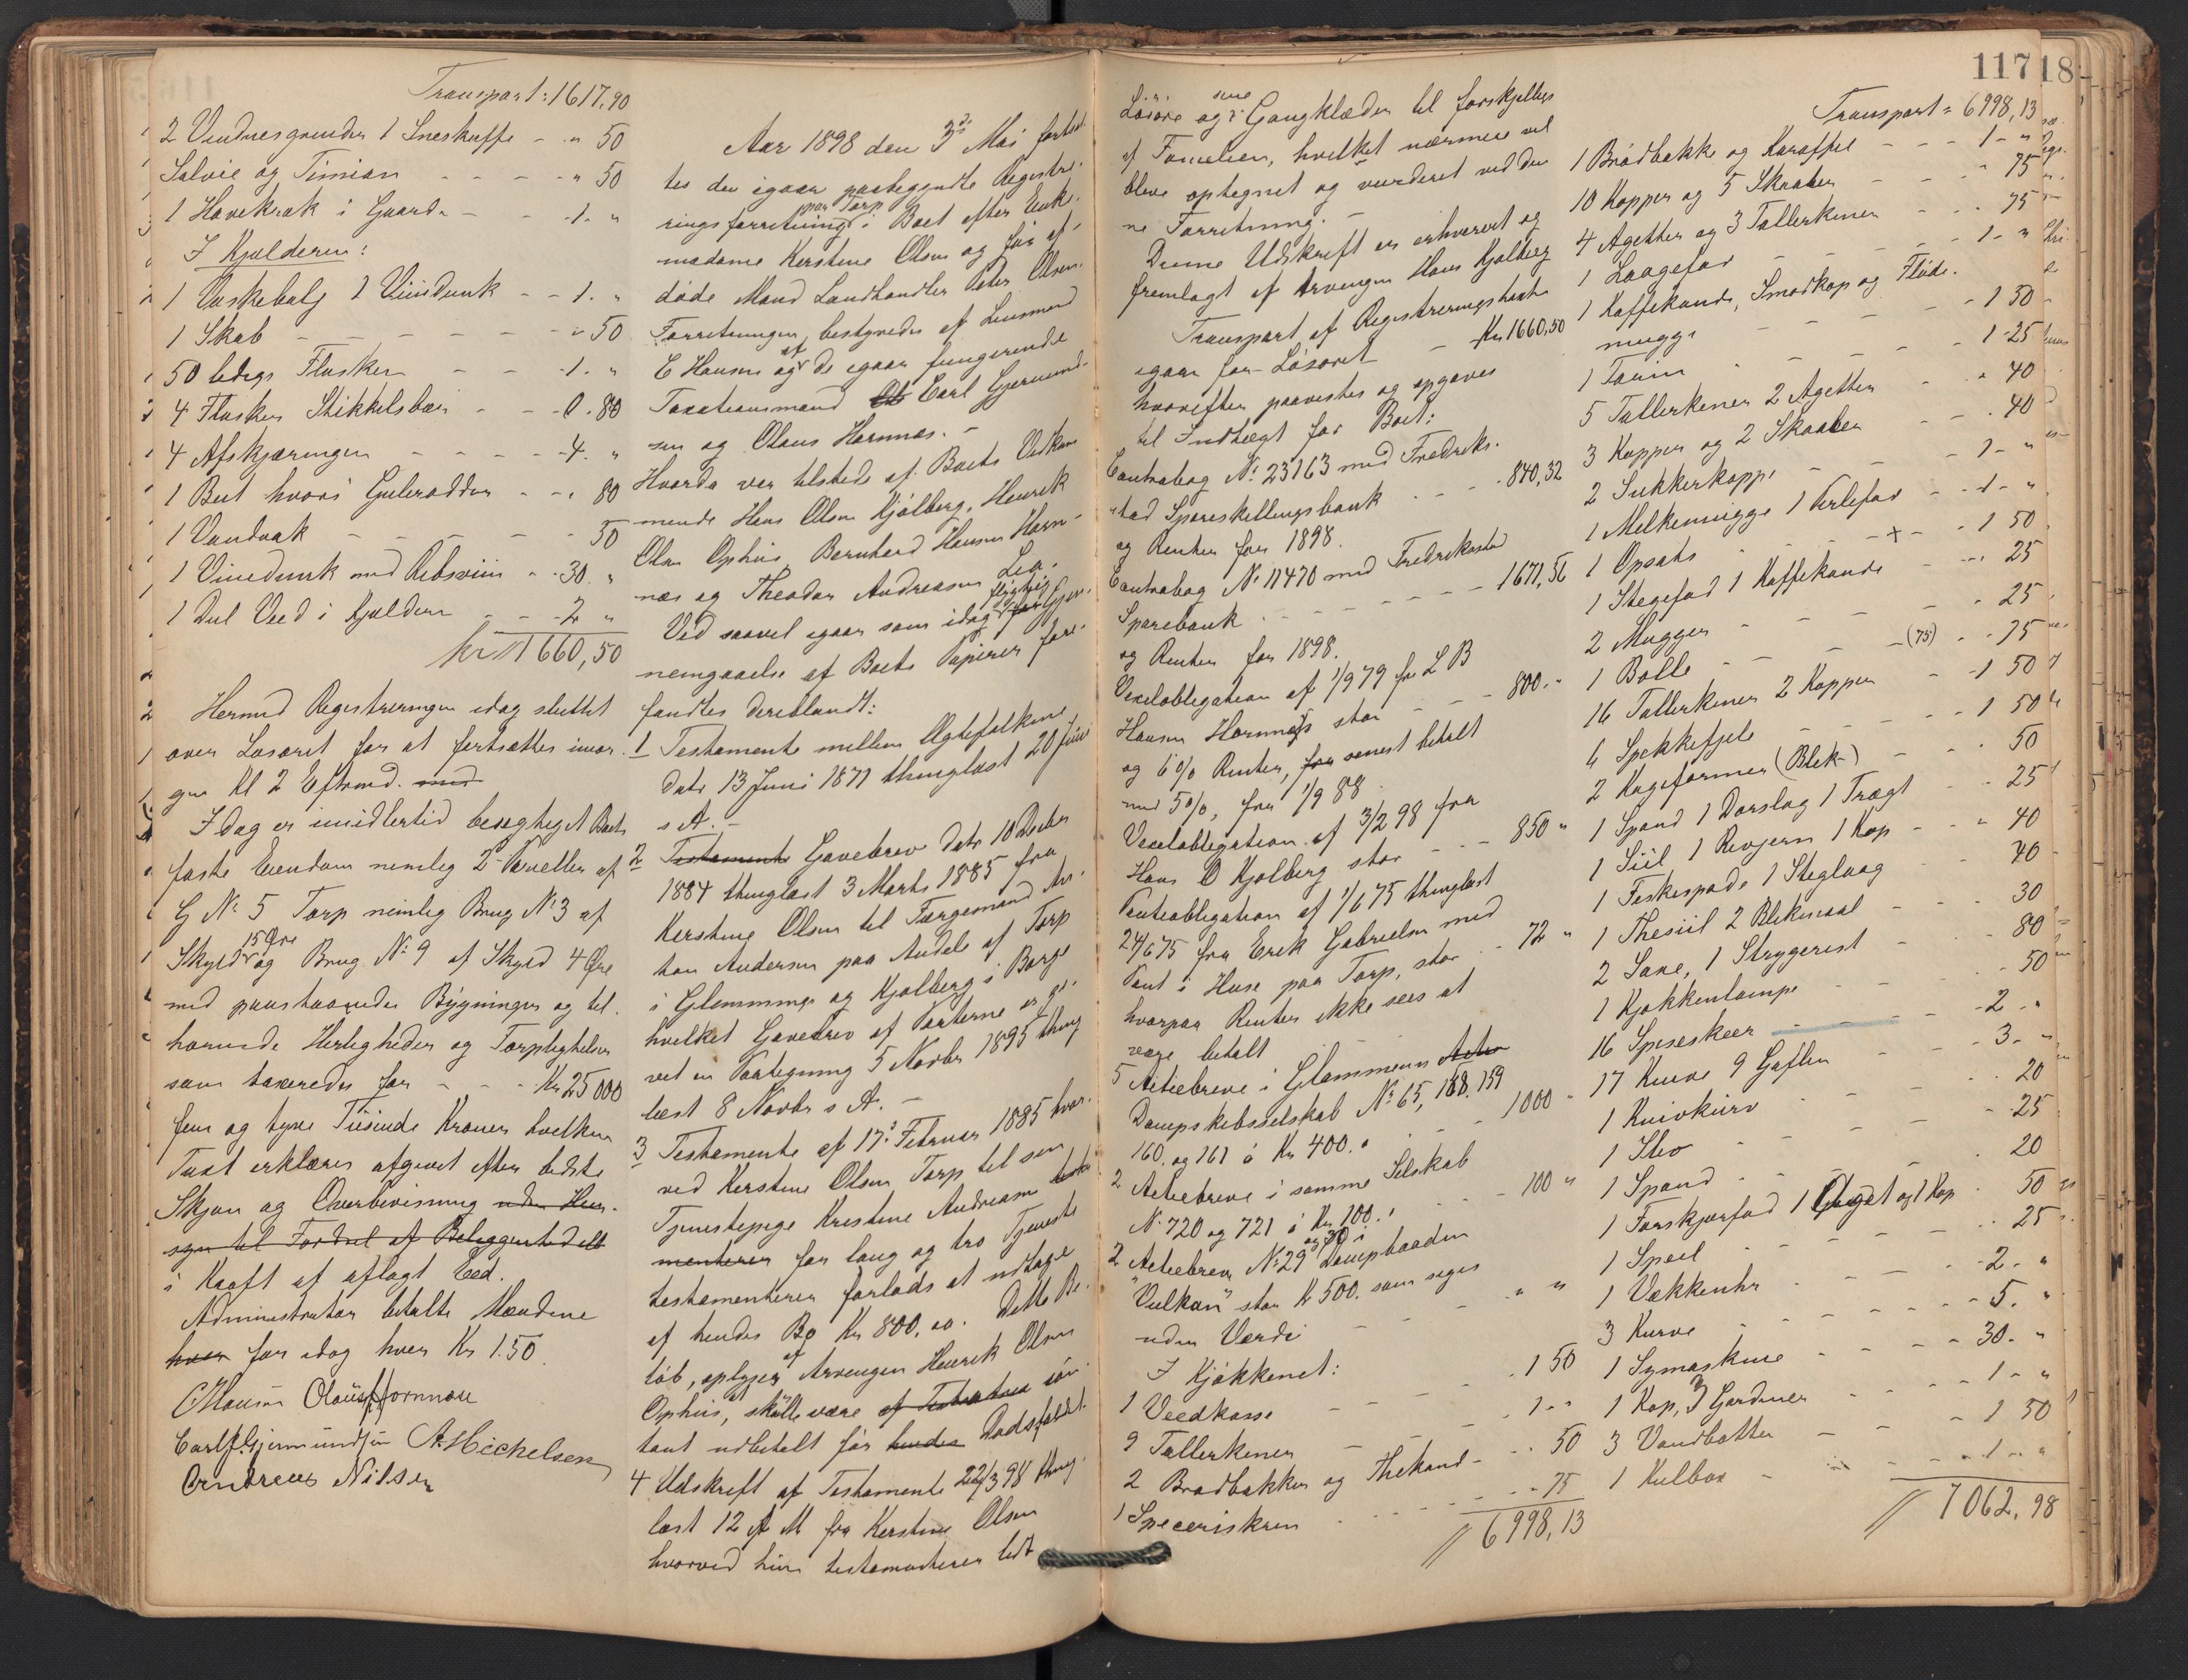 Transport: 1617,90
2 Vinduesgrinder 1 Sneskuffe - " 50
Salvie og Timian - - - - " 50
1 Havekrak i Gaarde - - 1. "
I Kjælderen:
1 Vaskebalg 1 Viindunk - - 1. "
1 Skab - - - - - " 50
50 ledige Flasker - - - 1. "
4 Flasker Stikkelsbær - - 0. 80
4 Afskjæringer - - - - 4. "
1 But hvori Gulerødder - - . 80
1 Vandvak - - - - - 50
1 Viinedunk med Ribsviin - . 30. "
1 Del Veed i Kjælderen - - 2 "
kr 1660,50
Hermed Registreringen idag sluttet
over Løsøret for at fortsættes imor-
gen Kl 2 Eftmd. med
I dag er imidlertid besigtiget Boets
faste Eiendom nemlig 2 Parceller af
G No 5 Torp nemlig Brug No 3 af
Skyld 15 Øre og Brug No 9 af Skyld 4 Øre
med paastaaende Bygninger og til-
hørende Herligheder og Torpligheder
som taxeredes for - - - Kr 25000
fem og tyve Tusinde Kroner hvilken
Taxt erklæres afgivet efter bedste
Skjøn og Overbevisning uden Hen-
syn til Fordeel af Beliggenhed alt
i Kraft af aflagt Eed.
Administrator betalte Mændene
hver for idag hver Kr 1.50.
C Hansen Olaus Hornnæs
Carl J. Gjermundsen A. Michelsen
Andreas Nilsen
Aar 1898 den 3die Mai fortsat-
tes den igaar paabegyndte Registre-
ringsforretning paa Torp i Boet efter Enke-
madame Kerstine Olsen og før af-
døde Mand Landhandler Peter Olsen.
Forretningen bestyredes af Lensmand
C Hansen og af de igaar fungerende
Taxationsmænd Ol Carl Gjermund-
sen og Olaus Hornnæs. -
Hvorda var tilstede af Boets Vedkom-
mende Hans Olsen Kjølberg, Henrik
Olsen Ophus, Bernhard Hansen Horn-
næs og Theodor Andreasen Lia.
Ved saavel igaar som idag flygtig Gjen-
nemgaaelse af Boets Papirer fore-
fandtes deriblandt:
1 Testamente mellem Ægtefolkene
datr 13 Juni 1871 thinglæst 20 Juni
s A. -
2 Testamente Gavebrev datr 10 Decbr
1884 thinglæst 3 Marts 1885 fra
Kerstine Olsen til Færgemand An-
ton Andersen paa Andele af Torp
i Glemminge og Kjølberg i Borge
hvilket Gavebrev af Parterne er gi-
vet en Paategning 5 Novbr 1895 thing
læst 8 Novbr s A. -
3 Testamente af 17de Februar 1885 hvor-
ved Kerstine Olsen Torp til sin
Tjenestepige Kristine Andreasen testa
menterer for lang og tro Tjeneste
testamenterer forlods at udtage
af hendes Bo Kr 800,00. Dette Be-
løb, oplyses af Arvingen Henrik Olsen
Ophus, skulle være af Testatrix søn
tant udbetalt før hendes Dødsfaldet.
4 Udskrift af Testamente 22/3 98 thing-
læst 12 A M fra Kerstine Olsen
hvorved hun testamenterer lidt
117 18
Løsøre og sine Gangklæder til forskjellige
af Familien, hvilket nærmere vil
blive optegnet og vurderet ved den
ne Forretning. -
Denne Udskrift er erhvervet og
fremlagt af Arvingen Hans Kjølberg
Transport af Registreringsforretn
igaar for Løsøret - Kr 1660,50
hvorefter paavistes og opgaves
til Indtægt for Boet:
Contrabog No 23163 med Fredriks-
stad Spareskillingsbank - - - 840,32
og Renter for 1898.
Contrabog No 11470 med Fredriksstad
Sparebank - - - - - - 1671,56
og Renter for 1898.
Vexelobligation af 1/9 79 fra L B
Hansen Hornnæs stor - - - 800. "
og 6 % Renter, fra senest betalt
med 5 %, fra 1/9 88
Vexelobligation af 3/2 98 fra
Hans O Kjølberg stor - - - 850 "
Panteobligation af 1/6 75 thinglæst
24/6 75 fra Erik Gabrielsen med
Pant i Huse paa Torp, stor - 72 "
hvorpaa Renter ikke sees at
være betalt
5 Actiebreve i Glommens Actie
Dampskibsselskab No 65, 158, 159
160. og 161 á Kr 400. " - - 1000 "
2 Actiebreve i samme Selskab
N. 720 og 721 á Kr 100. " - - 100 "
2 Actiebreve No 29 og 30 i Dampbaaden
"Vulkan" stor Kr 500. som siges
uden Værdi - - - " "
I Kjøkkenet:
1 Veedkasse - - - - 1 50
9 Tallerkener - - - - 1. "
2 Brødbakker og Thekand - - . 50
1 Specerískrin - - - - . 75
6998,13
Transport = 6998,13
1 Brødbakke og Karaffel - - - 1 - "
10 Kopper og 5 Skaaler - - - 75
4 Agetter og 3 Tallerkener - - . 75
1 Laagefad - - - - 1 - "
1 Kaffekande, Smørkop og Fløde-
mugge - - - - - 1 50
1 Tarin - - - - 1 - 25
5 Tallerkener 2 Agetter - - . 40
3 Kopper og 2 Skaaler - - . 40
2 Sukkerkopper - - - 1 - "
1 Melkemugge 1 Perlefad - - 1 - "
1 Opsats - - - + - - 1 50
1 Stegefad 1 Kaffekande - - 25
2 Mugger - - - - . 25
1 Bolle - - - - (75) - . 75
16 Tallerkener 2 Kopper - - 1 50
6 Spekkefjele - - - - 1 50
2 Kageformer (Blek-) - - . 50
1 Spand 1 Dørslag 1 Trægt - . 25
1 Siil 1 Rivjern 1 Kop - - " 40
1 Feskespade 1 Steglaag - - 40
1 Thesiil 2 Blikmaal - - - 30
2 Saxe, 1 Strygerist - - - . 80
1 Kjøkkenlampe - - - . 50
16 Spiseskeer - - - - 2. "
17 Knive 9 Gafler - - - 3. "
1 Knivkurv - - - - . 20
1 Stev - - - - - . 25
1 Spand - - - - . 20
1 Forskjærfad 1 og 1 Kop . 50
1 Speil - - - - . 25
1 Vækkeuhr - - - - 2. "
3 Kurve - - - - - 5. "
1 Symaskine - - - - 30. "
1 Kop, 3 Gardiner - - - 1 - "
3 Vandbøtter - - - 1 50
1 Kulbox - - - - 1. "
7062,98